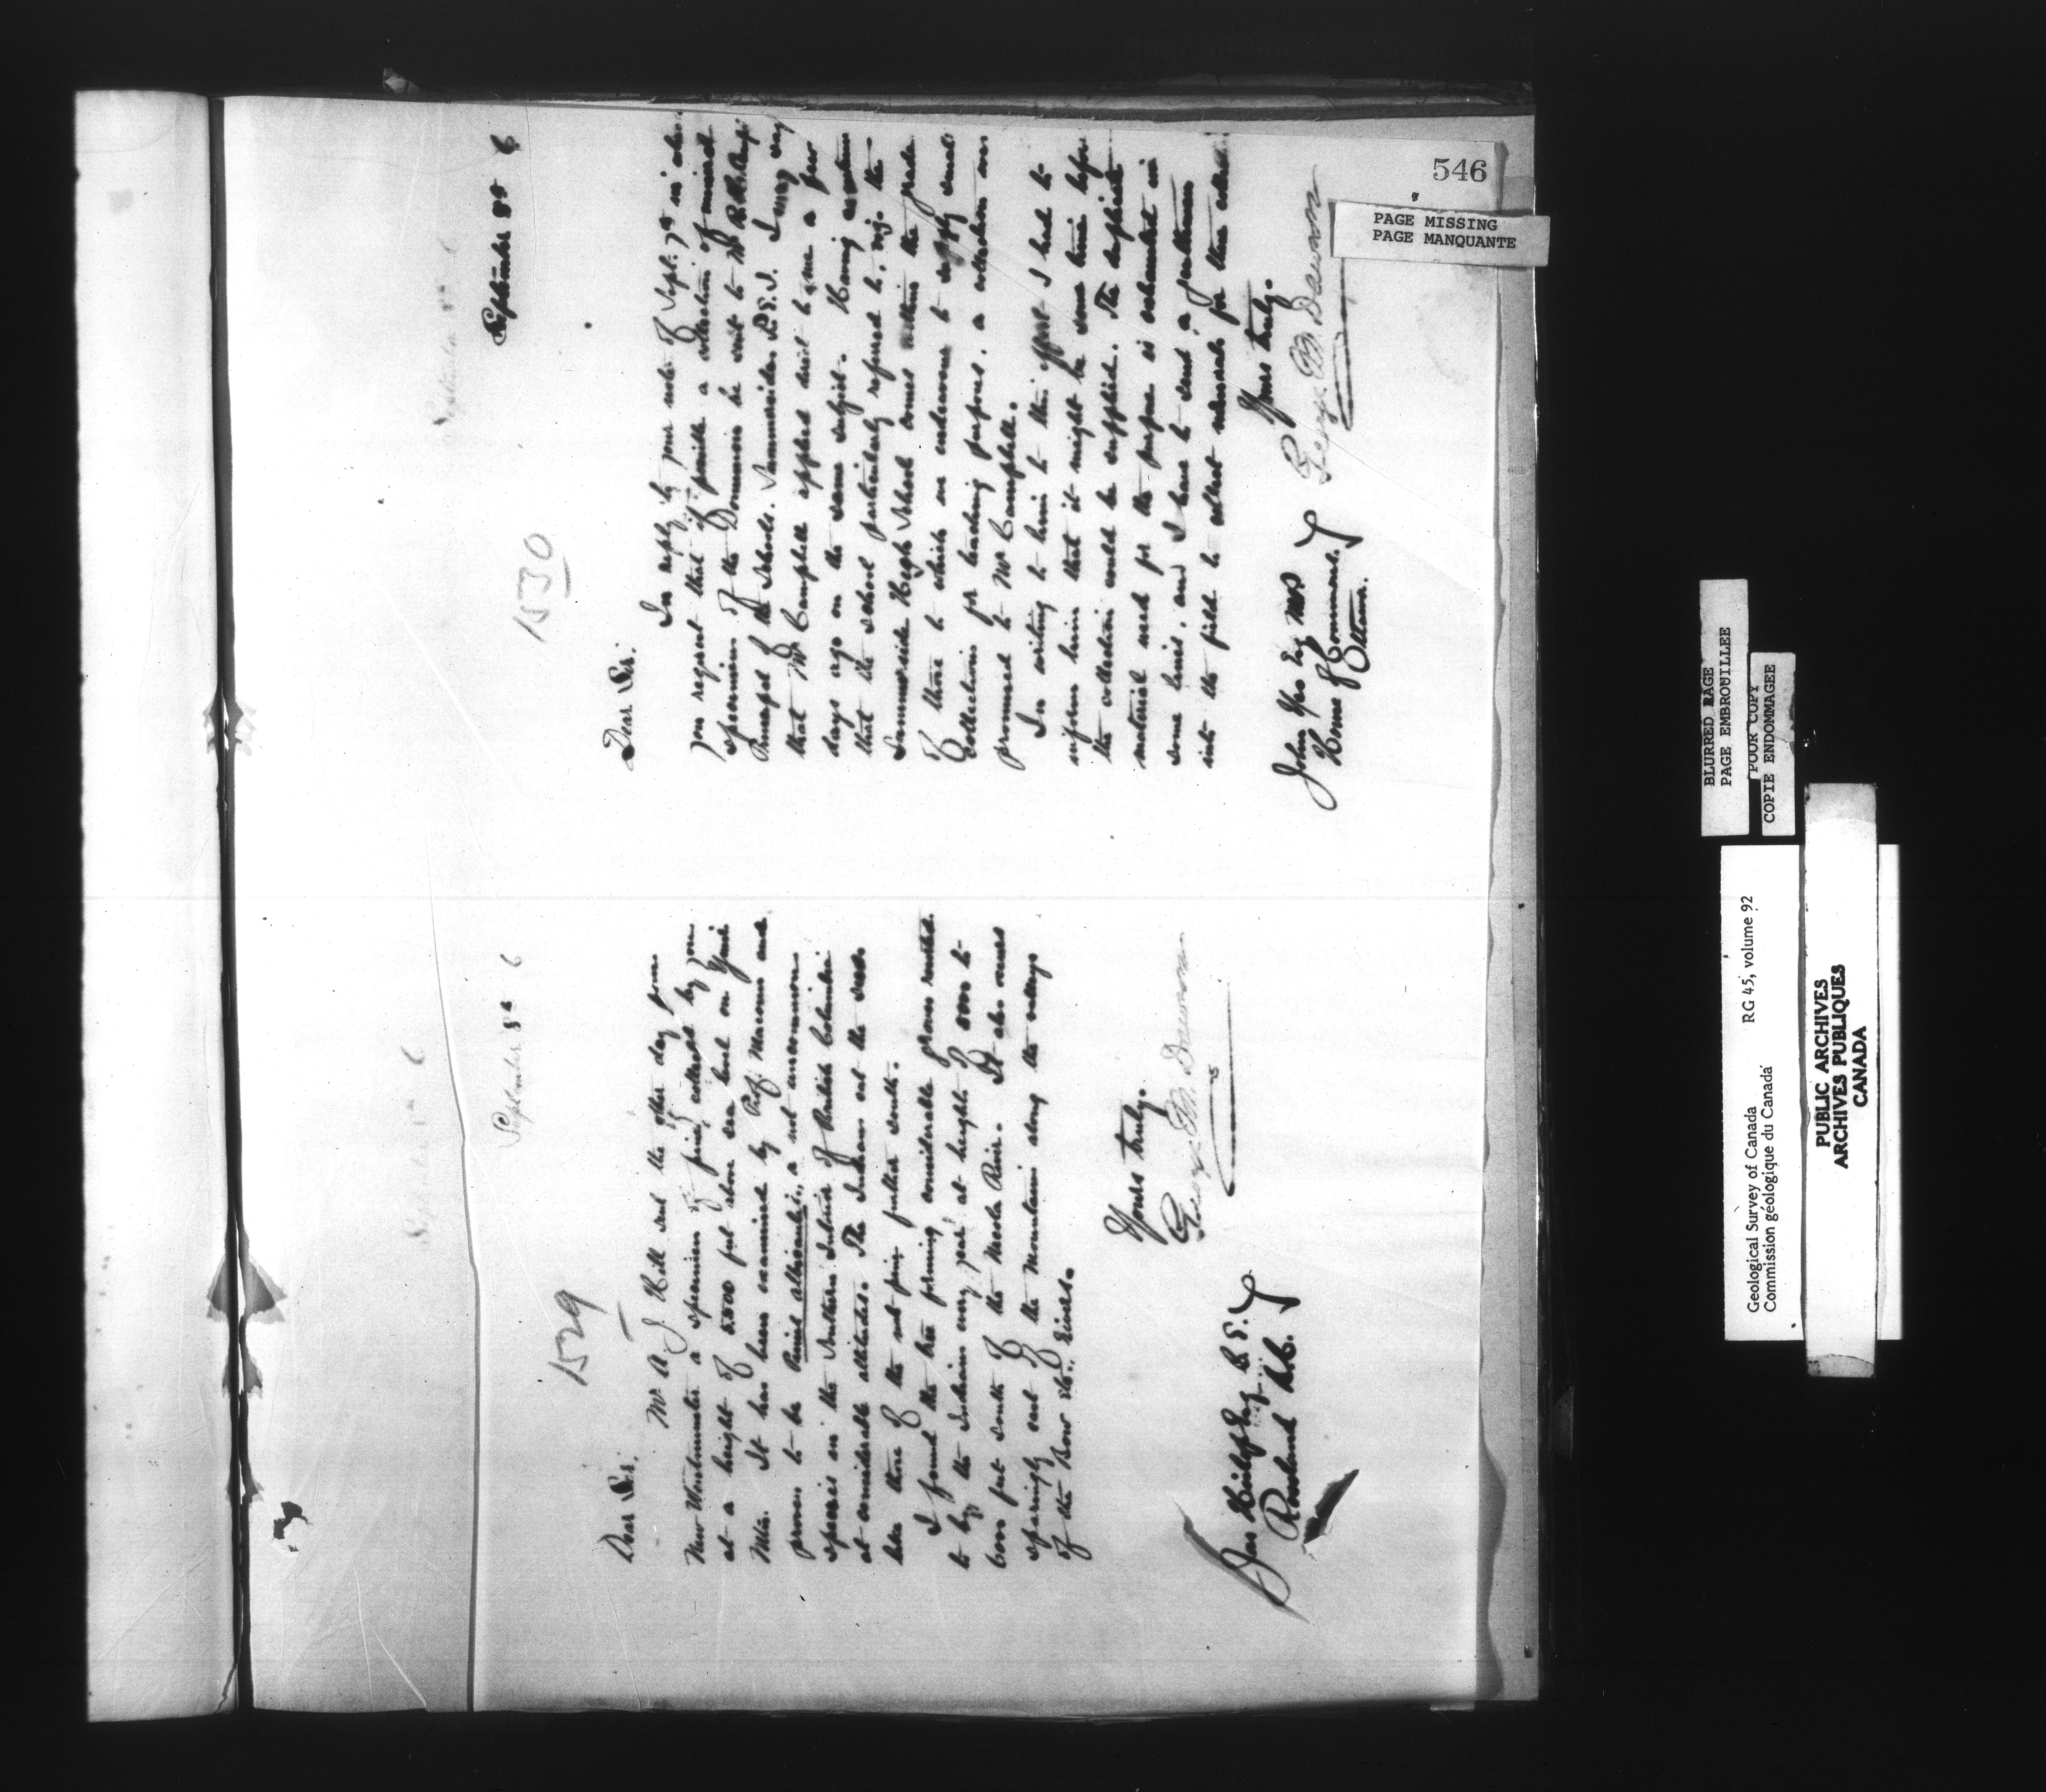 546
PAGE MISSING
PAGE MANQUANTE
1529
September 8th 6
Dear Sir.
Mr A. J. Hill sent the other day from
New Westminster a specimen of pine, collected by you
at a height of 5500 feet above sea level on
Mtn. It has been examined by Prof. Macoun and
proves to be Pinus albicaulis, a not uncommon
species in the Southern Interior of British Columbia
at considerable altitudes. The Indians eat the seeds
like those of the nut pine further south.
I found the tree forming considerable groves resorted
to by the Indians every year at heights of 5000 to
6000 feet south of the Nicola River. It also occurs
sparingly east of the Mountains along the valleys
of the Bow &c. Rivers.
Yours truly.
George M. Dawson
Jas Esq C. E.
Rossland B.C.
1530
September 8th 6
Dear Sir.
In reply to your note of Sept. 7th in which
you request that if possible a collection of mineral
specimens of the Dominion be sent to Mr
Principal of the Schools. Summerside P.E.I. I may say
that Mr Campbell applied direct to me a few
days ago on the same subject. Having ascertain
that the school particularly referred to, viz. the
Summerside High School comes within the grade
of those to which we endeavour to supply small
collections for teaching purposes, a collection was
promised to Mr Campbell.
In writing to him to this effect I had to
inform him that it might be some time before
the collection could be supplied. The duplicate
material used for the purpose is exhausted in
some lines, and I have to send a gentleman
into the field to collect minerals for these collec
Yours truly.
George M. Dawson
John Yeo Esq MP
House of Commons.
Ottawa.
BLURRED PAGE
PAGE EMBROUILLEE
POOR COPY
COPIE ENDOMMAGEE
Geological Survey of Canada RG 45, volume 92
Commission géologique du Canada
PUBLIC ARCHIVES
ARCHIVES PUBLIQUES
CANADA